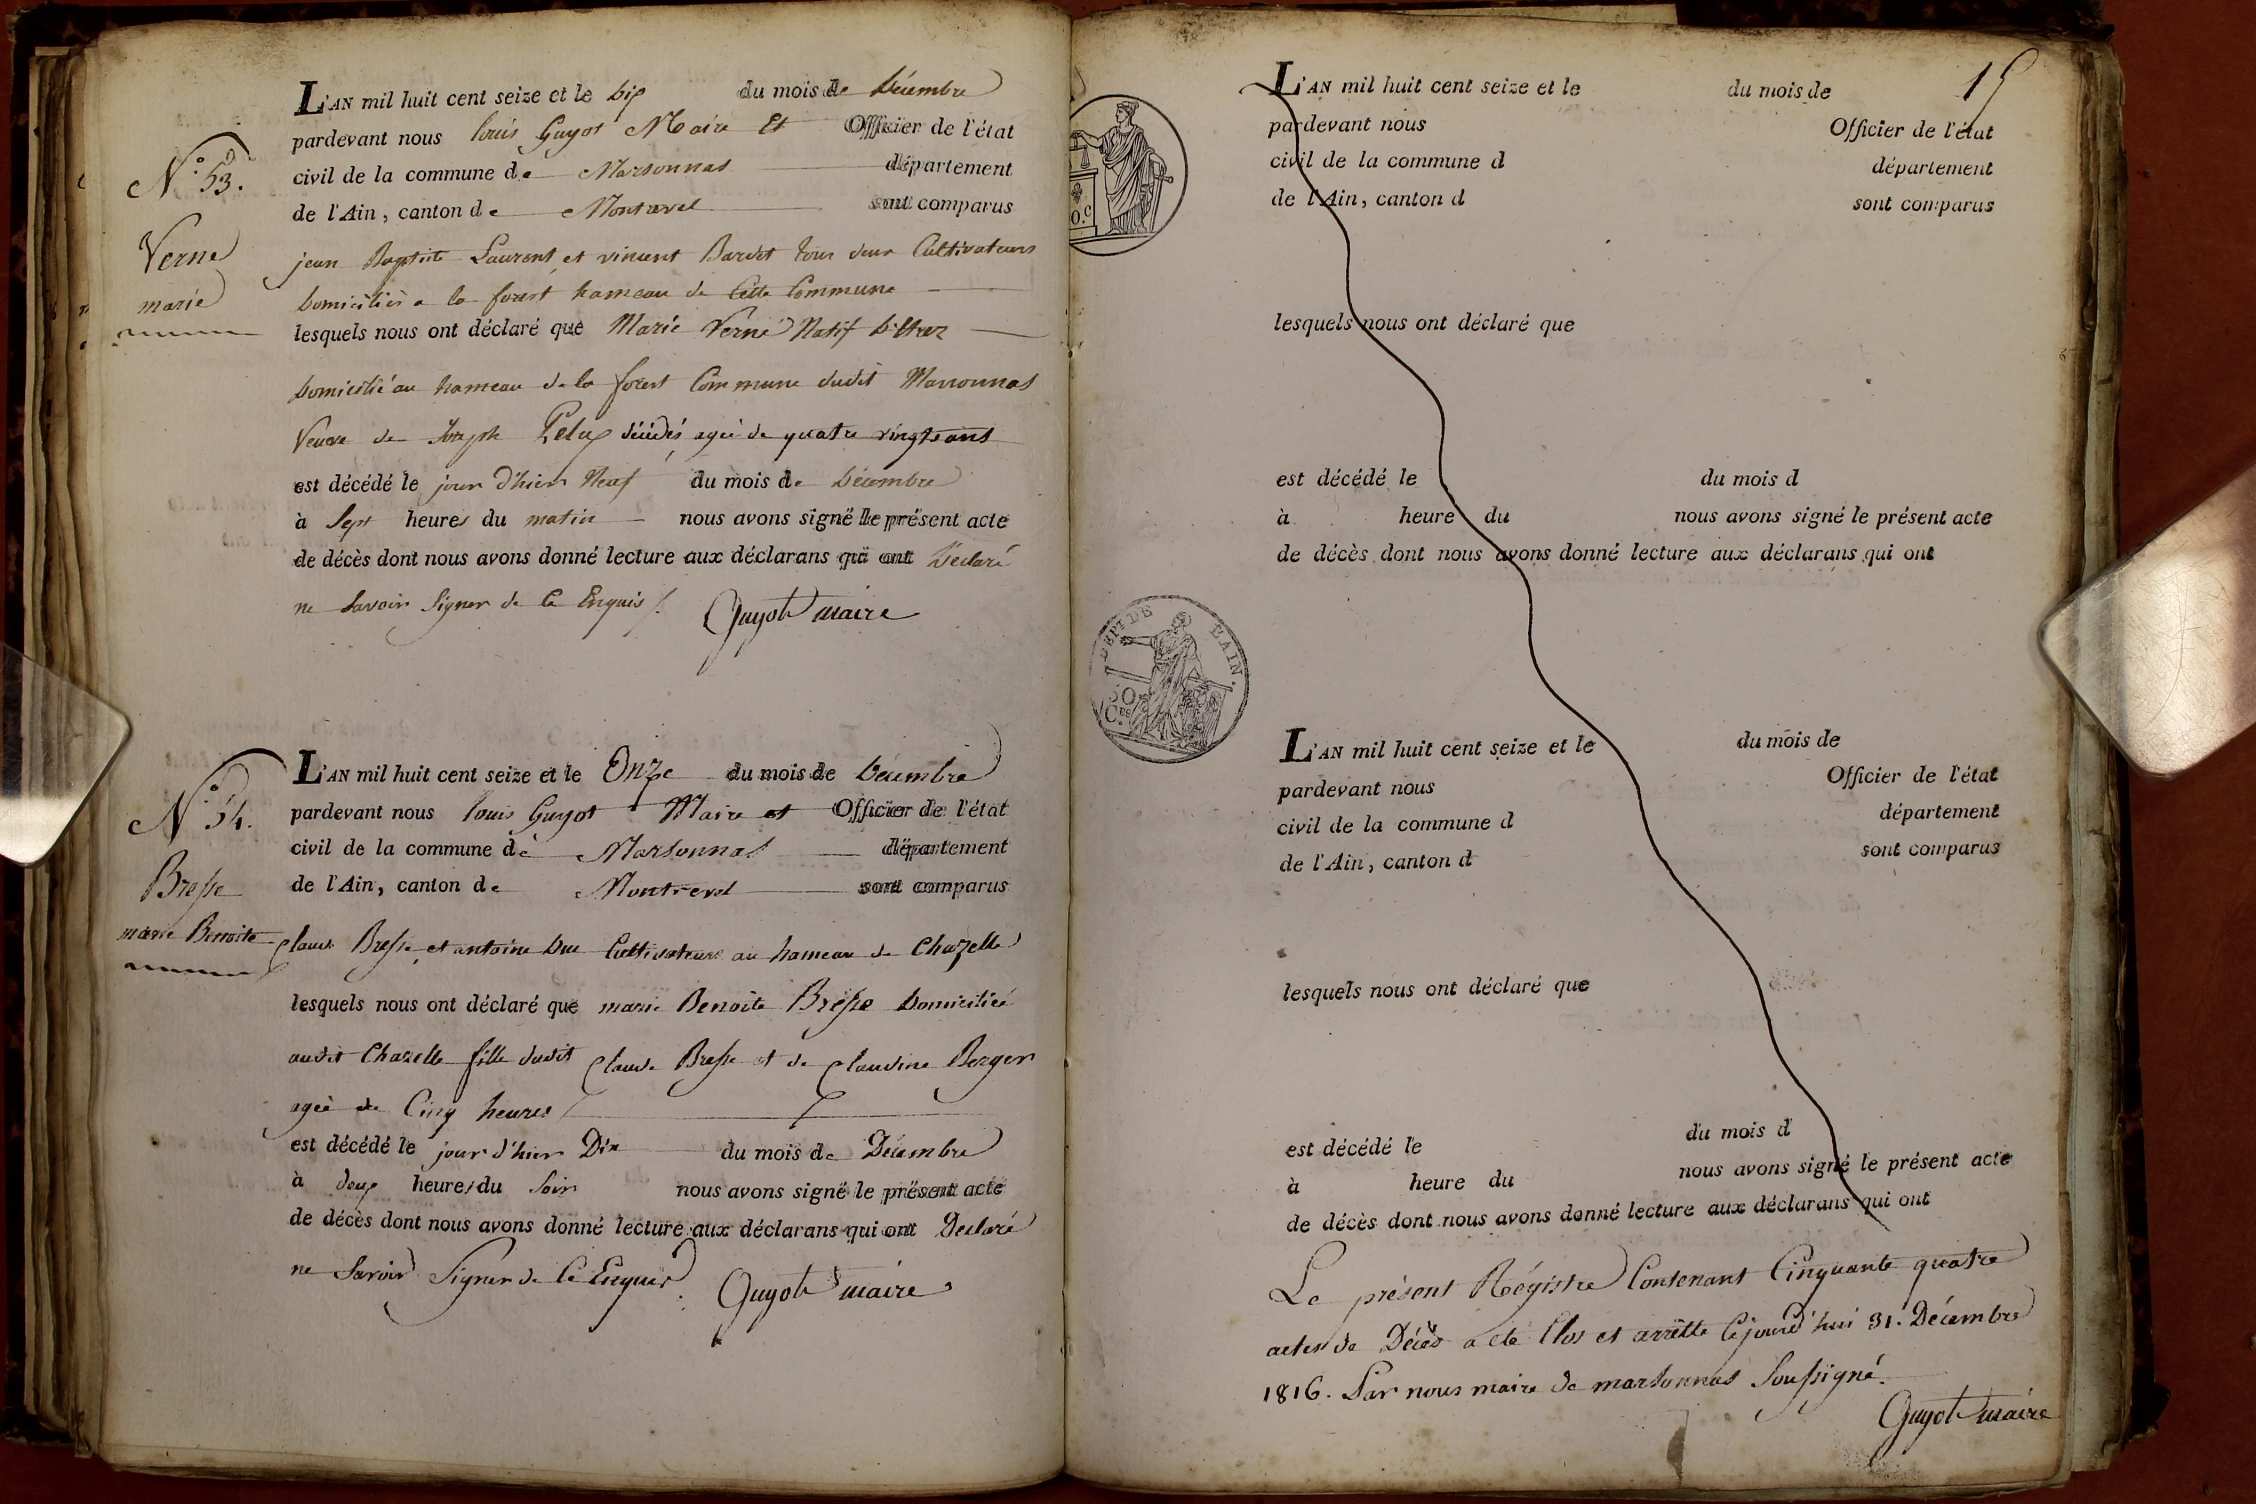 L'AN mil huit cent seize et le dix du mois de Décembre
pardevant nous louis Guyot Maire Et Officier de l'état
civil de la commune de Marsonnas département
de l'Ain, canton de Montrevel sont comparus
jean Baptiste Laurent et vincent Bardet tous deux Cultivateurs
domiciliés a la forest hameau de Cette Commune
lesquels nous ont déclaré que Marie Verne Natif
domicilié au hameau de la forest Commune dudit Marsonnas
Veuve de Joseph Pelux décédé, ageé de quatre vingts ans
est décédé le jour d'hier Neuf du mois de Décembre
à Sept heures du matin nous avons signé le présent acte
de décès dont nous avons donné lecture aux déclarans qui ont Déclaré
ne Savoir Signer de Ce Enquis
Guyot maire
N.° 53.
Verne
marie
L'AN mil huit cent seize et le Onze du mois de Décembre
pardevant nous louis Guyot Maire et Officier de l'état
civil de la commune de Marsonnas département
de l'Ain, canton de Montrevel sont comparus
Claude Bresse et antoine Duc Cultivateurs au hameau de Chazelle
lesquels nous ont déclaré que marie Benoite Bresse domiciliée
audit Chazelle fille dudit Claude Bresse et de Claudine Berger
ageé de Cinq heures
est décédé le jour d'hier Dix du mois de Décembre
à deux heures du Soir nous avons signé le présent acte
de décès dont nous avons donné lecture aux déclarans qui ont Declaré
ne Savoir Signer de Ce Enquis
Guyot maire
N.° 54.
Bresse
marie Benoite
15
L'AN mil huit cent seize et le du mois de
pardevant nous Officier de l'état
civil de la commune d département
de l'Ain, canton d sont comparus
lesquels nous ont déclaré que
est décédé le du mois d
à heure du nous avons signé le présent acte
de décès dont nous avons donné lecture aux déclarans qui ont
DEPT DE L'AIN.
50
Ces
L'AN mil huit cent seize et le du mois de
pardevant nous Officier de l'état
civil de la commune d département
de l'Ain, canton d sont comparus
lesquels nous ont déclaré que
est décédé le du mois d
à heure du nous avons signé le présent acte
de décès dont nous avons donné lecture aux déclarans qui ont
Le présent Régistre Contenant Cinquante quatre
actes de Décès a été Clos et arrêtté Cejourd'hui 31. Décembre
1816. Par nous maire de marsonnas Soussigné.
Guyot maire